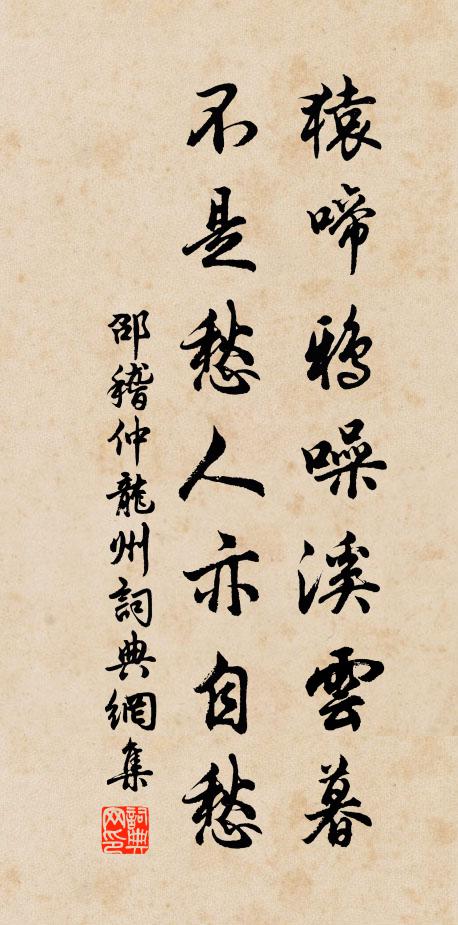 猿啼鴉噪溪雲暮
不是愁人亦自愁
邵稽仲龍州詞典網集
詞典
网印